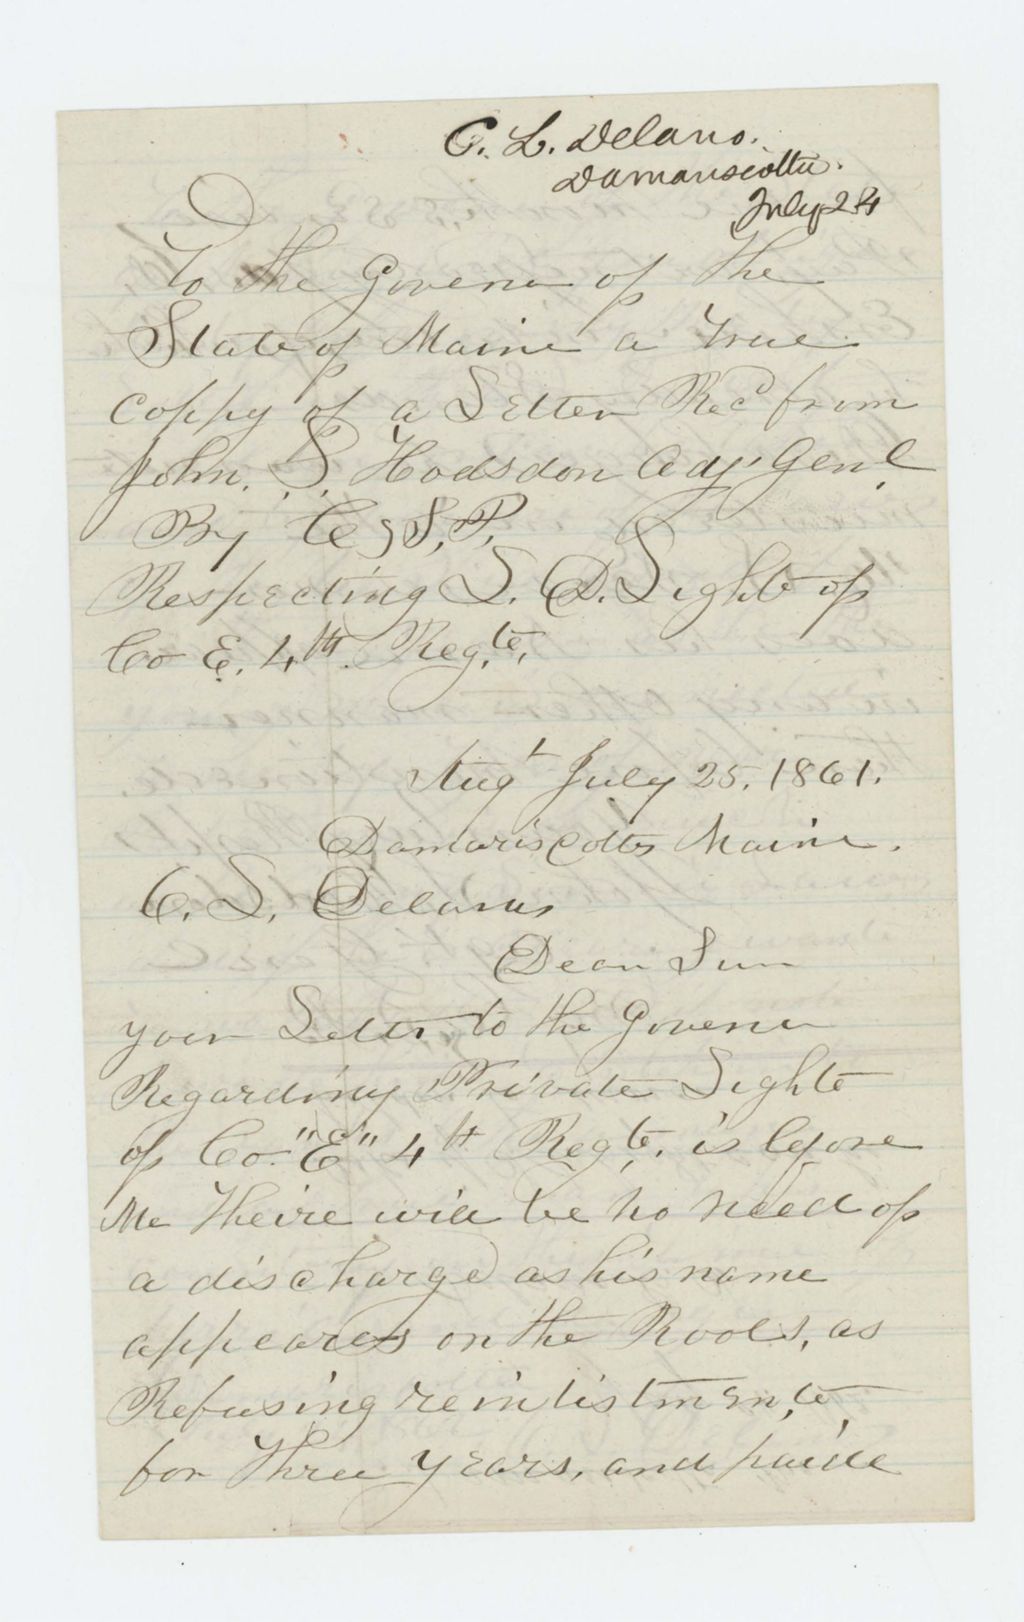 C. L. Delano.
Damariscotta.
July 24
To the Govener of The
State of Maine a true
coppy of a Letter Recd from
John. L Hodsdon Adj' Genl.
By C, S, P.
Respecting L. D. Light of
Co E. 4th Reg,te,
Augt July 25, 1861.
Damariscotta Maine.
C. L. Delano
Dear Sir
your Letter to the Govener
Regarding Private Light
of Co. "E" 4th Reg,te, is before
Me Theire will be no need of
a discharge as his name
appeares on the Rools, as
Refusing reinlistmente,
for Three years, and paide